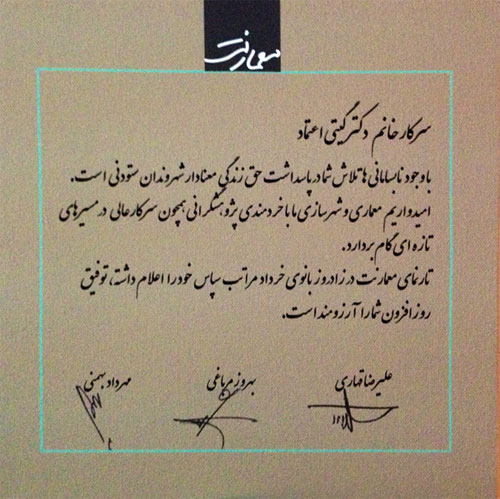 معمارنت
سرکار خانم دکتر گیتی اعتماد
با وجود نابسامانی ها تلاش شما در پاسداشت حق زندگی معنادار شهروندان ستودنی است.
امیدواریم معماری و شهرسازی ما با خردمندی پژوهشگرانی همچون سرکار عالی در مسیرهای
تازه ای گام بردارد.
تارنمای معمارنت در زادروز بانوی خرداد مراتب سپاس خود را اعلام داشته، توفیق
روزافزون شما را آرزومند است.
علیرضا قهاری بهروز مرباغی مهرداد بهمنی